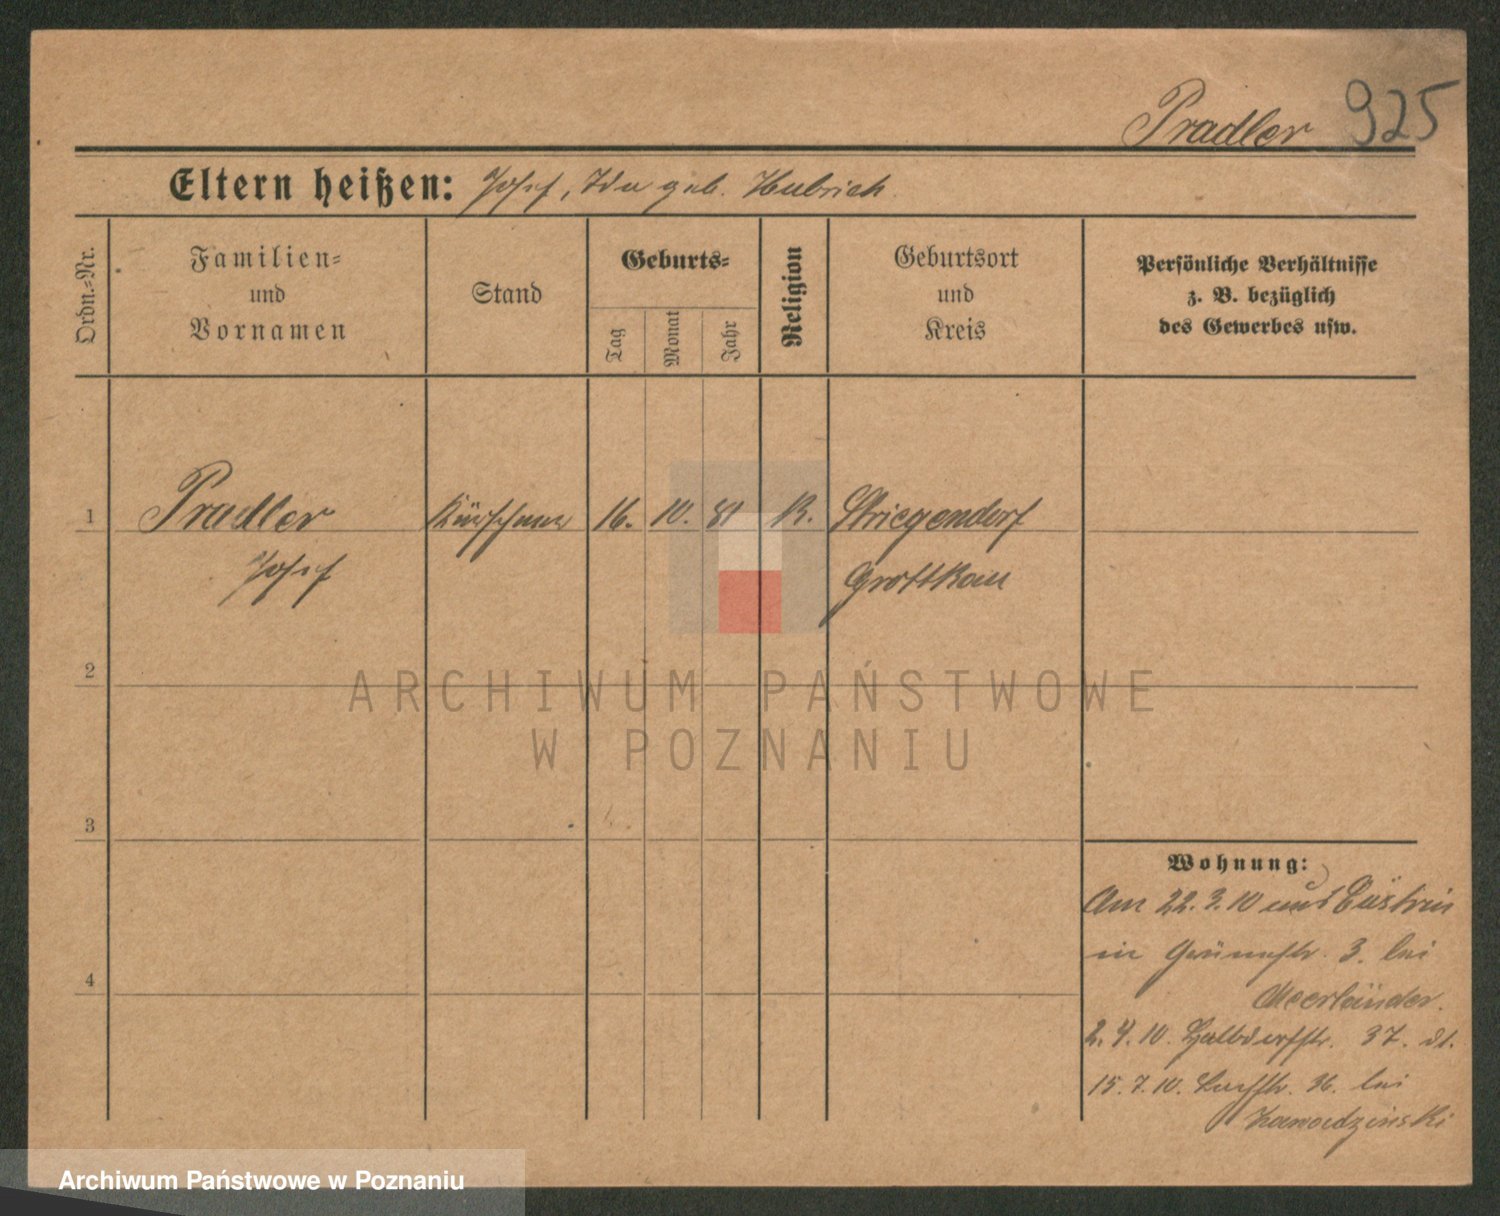 Pradler 925
Eltern heißen: Josef, Ida geb. Hubrich
Ordn.-Nr.
Familien-
und
Vornamen
Stand
Geburts-
Tag
Monat
Jahr
Religion
Geburtsort
und
Kreis
Persönliche Verhältnisse
z. B. bezüglich
des Gewerbes usw.
1 Pradler Kürschner 16. 10. 81 K. Striegendorf
Josef Grottkau
2
ARCHIWUM PAŃSTWOWE
W POZNANIU
3
Wohnung:
Am 22.3.10 aus Cüstrin
4
in Grünestr. 3. bei
Meerländer.
2.4.10. Halbdorfstr. 37. dt.
15.7.10. 36. bei
Zawadzinski
Archiwum Państwowe w Poznaniu